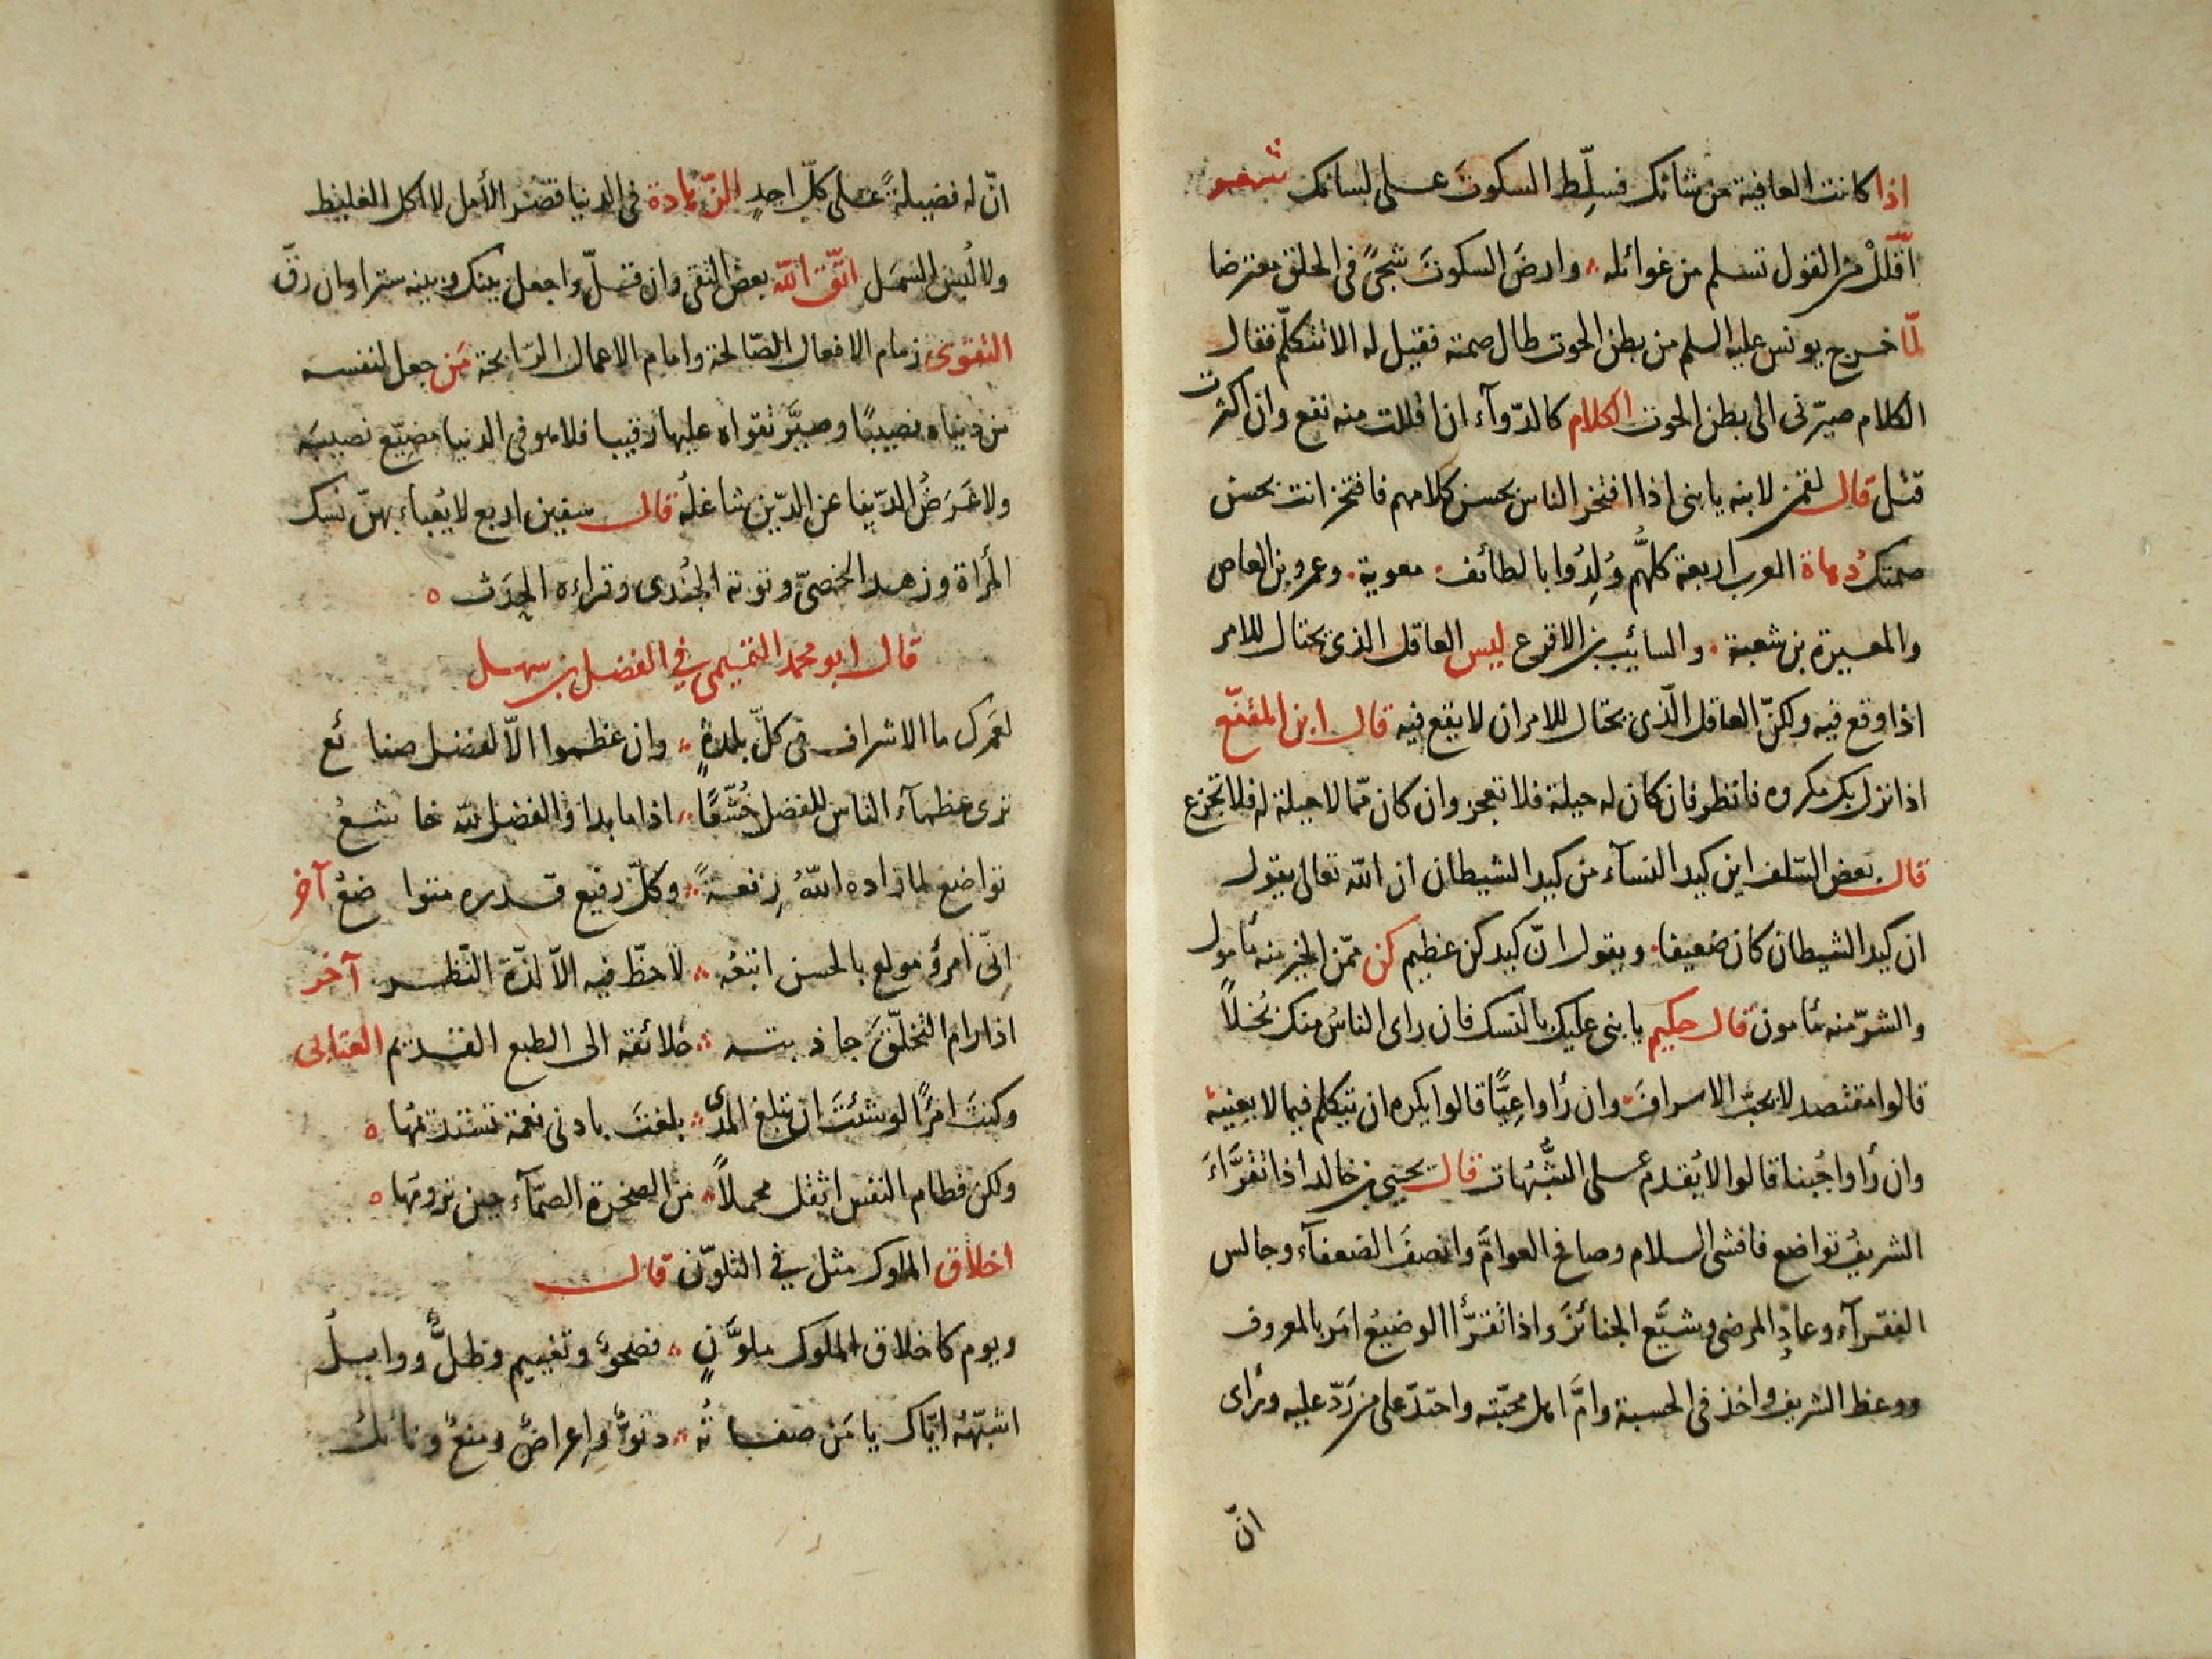 اذا كانت العافية من شانك فسلِّط السكوتَ على لسانك شعر
اَقْلِلْ من القول تسلم من غوائله ۞ وارضَ السكوتَ شجىً في الحلق معترضا
لمّا خرج يونس عليه السلم من بطن الحوت طال صمته فقيل له الا تتكلّم فقال
الكلام صيّرنى الى بطن الحوت الكلام كالدّوآء ان اقللت منه نفع وان اكثرت
قتل قال لقمن لابنه يا بنى اذا افتخر الناس بحسن كلامهم فافتخر انت بحسن
صمتك دُهاة العرب اربعة كلهُّم وُلِدُوا بالطائف. معوية. وعمرو بن العاص
والمغيرة بن شعبة. والسائب بن الاقرع ليس العاقل الذى يحتال للامر
اذا وقع فيه ولكنّ العاقل الّذى يحتال للامر ان لا يقع فيه قال ابن المقفّع
اذا نزل بك مكروه فانظر فان كان له حيلة فلا تعجز وان كان ممّا لا حيلة له فلا تجزع
قال بعض السّلف اين كيد النسآء من كيد الشيطان ان الله تعالى يقول
ان كيد الشيطان كان ضعيفا. ويقول انّ كيدكن عظيم كن ممّن الخير منه مأمول
والشرّ منه مأمون قال حكيم يا بنى عليك بالنسك فان راى الناسُ منك بُخلاً
قالوا مقتصد لا يحبّ الاسرافَ وان رأوا عِيًّا قالوا يكره ان يتكلم فيما لا يعنيه
وان رأوا جُبنا قالوا لا يُقدم على الشُّبُهات قال يحيى بن خالد اذا تقرَّاءَ
الشريفُ تواضع فافشى السلام وصافح العوامَّ وانصفَ الضعفآء وجالس
الفقرآء وعاد المرضى وشيَّع الجنائزَ واذا تقرَّأ الوضيعُ امَر بالمعروف
ووعظ الشريف واخذ في الحسبة وامَّ اهل محبّته واحتدّ على من رَدّ عليه ورأى
انّ
انّ له فضيلةً على كلّ احدٍ الزّهادة فى الدنيا قصَر الأمل لا اكل الغليظ
ولا لُبس السَمَل اتّق اللّه بعض التقى وان قلّ واجعل بينك وبينه سترا وان رقّ
التقوى زمام الافعال الصّالحة وامام الاعمال الرّابحة مَن جعل لنفسه
من دنياه نصيبًا وصيَّر تقواه عليها رقيبا فلا هو فى الدنيا مضيّع نصيبَه
ولا عَرَضُ الدّنيا عن الدّين شاغلُه قال سفين اربع لا يُعباء بهنّ نسك
المرأة وزهد الخصىّ وتوبة الجُندى وقراءه الحدَث ه
قال ابو محمد التميمى في الفضل بن سهل
لعَمرك ما الاشراف فى كلّ بلدةٍ ۞ وان عظموا الاّ لفضل صنائع
ترى عظمآء الناس للفضل خُشّعًا ۞ اذا ما بدا والفضل للّه خاشعُ
تواضع لما زاده اللّهُ رِفعةً ۞ وكلّ رفيع قدره متواضعُ آخر
اِنّى امرؤ مولع بالحسن اتبعُه ۞ لا حظّ فيه الاّ لذّة النّظر آخر
اذا رام التخلّقَ جاذبته ۞ خلائقه الى الطبع القديم العتابى
وكنتَ امرًأ لو شئتَ ان تبلغ المدى ۞ بلغتَ بادنى نعمة تستديمُها ه
ولكن فطام النفس اثقل محملاً ۞ من الصخرة الصمّآء حين ترومُها ه
اخلاق الملوك مثل في التلوّن قال
ويوم كاخلاق الملوك ملوَّنٍ ۞ فصحوٌ وتغييم وطلٌّ ووابلُ
اشبّهُه ايّاك يا مَن صفاتُه ۞ دنوٌّ واِعراضٌ ومنعٌ ونائلُ